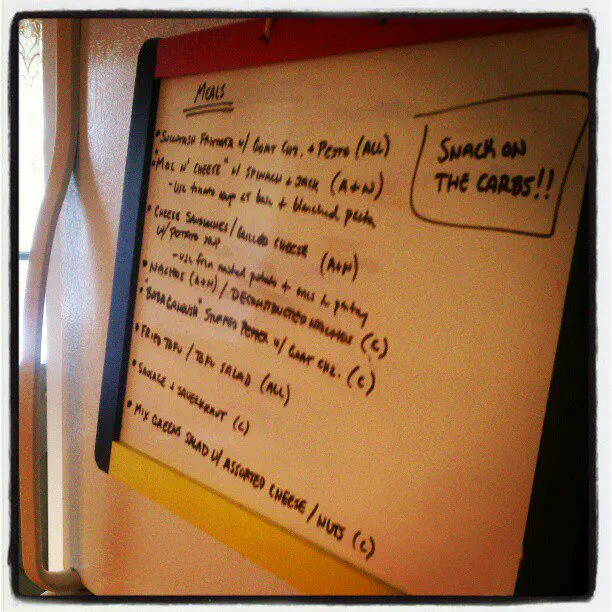 MEALS
• SUCCOTASH FRITTATA W/ GOAT CHZ. + PESTO (ALL)
• "MAC N' CHEESE" W/ SPINACH + JACK (A+N)
- USE tomato soup as base + blanched pasta
• CHEESE SANDWICHES / GRILLED CHEESE (A+N)
W/ POTATO SOUP
- USE from mashed potato + in pantry
• NACHOS (A+N) / DECONSTRUCTED NACHOS (C)
• "BABAGANOUSH" STUFFED PEPPER W/ GOAT CHZ. (C)
• FRIED TOFU / TOFU SALAD (ALL)
• SAUSAGE + SAUERKRAUT (C)
• MIX GREENS SALAD W/ ASSORTED CHEESE / NUTS (C)
SNACK ON
THE CARBS!!